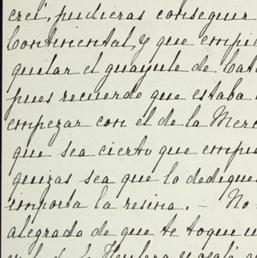 creí, pudieras conseguir
Continental, y que empie
quilar el guayule de Cat
pues recuerdo que estaba
empezar con el de la Merc
que sea cierto que empie
quizas sea que lo dedique
importa la resina. — No
alegrado de que te toque u